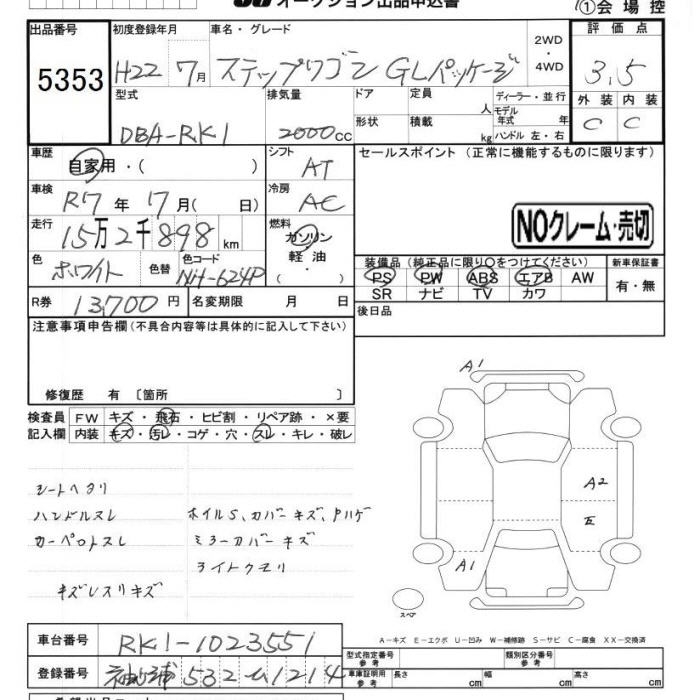 オークション出品申込書
①会場控
出品番号 初度登録年月 車名・グレード 2WD・4WD 評価点
5353 H22 7月 ステップワゴン GLパッケージ 3.5
型式 排気量 ドア 定員 人 ディーラー・並行 外装 内装
DBA-RK1 2000cc 形状 積載 kg モデル年式 年 ハンドル 左・右 C C
車歴 自家用・( ) シフト AT セールスポイント(正常に機能するものに限ります)
車検 R7年 17月( 日) 冷房 AC
走行 15万2千898km 燃料 ガソリン 軽油・( ) NOクレーム・売切
色 ホワイト 色替 色コード NH-624P 装備品(純正品に限り○をつけてください) 新車保証書
PS PW ABS エアB AW 有・無
SR ナビ TV カワ
R券 13,700円 名変期限 月 日 後日品
注意事項申告欄(不具合内容等は具体的に記入して下さい)
修復歴 有〔箇所 〕
検査員記入欄 FW キズ・飛石・ヒビ割・リペア跡・×要
内装 キズ・汚レ・コゲ・穴・スレ・キレ・破レ
シートヘタリ
ハンドルスレ ホイルS、カバーキズ、Pハゲ
カーペットスレ ミラーカバーキズ
ライトクモリ
キズレスリキズ
A1
A2
A1
スペア
A-キズ E-エクボ U-凹み W-補修跡 S-サビ C-腐食 XX-交換済
車台番号 RK1-1023551 型式指定番号 参考 類別区分番号 参考
登録番号 532 1214 車庫証明用 参考 長さ cm 幅 cm 高さ cm